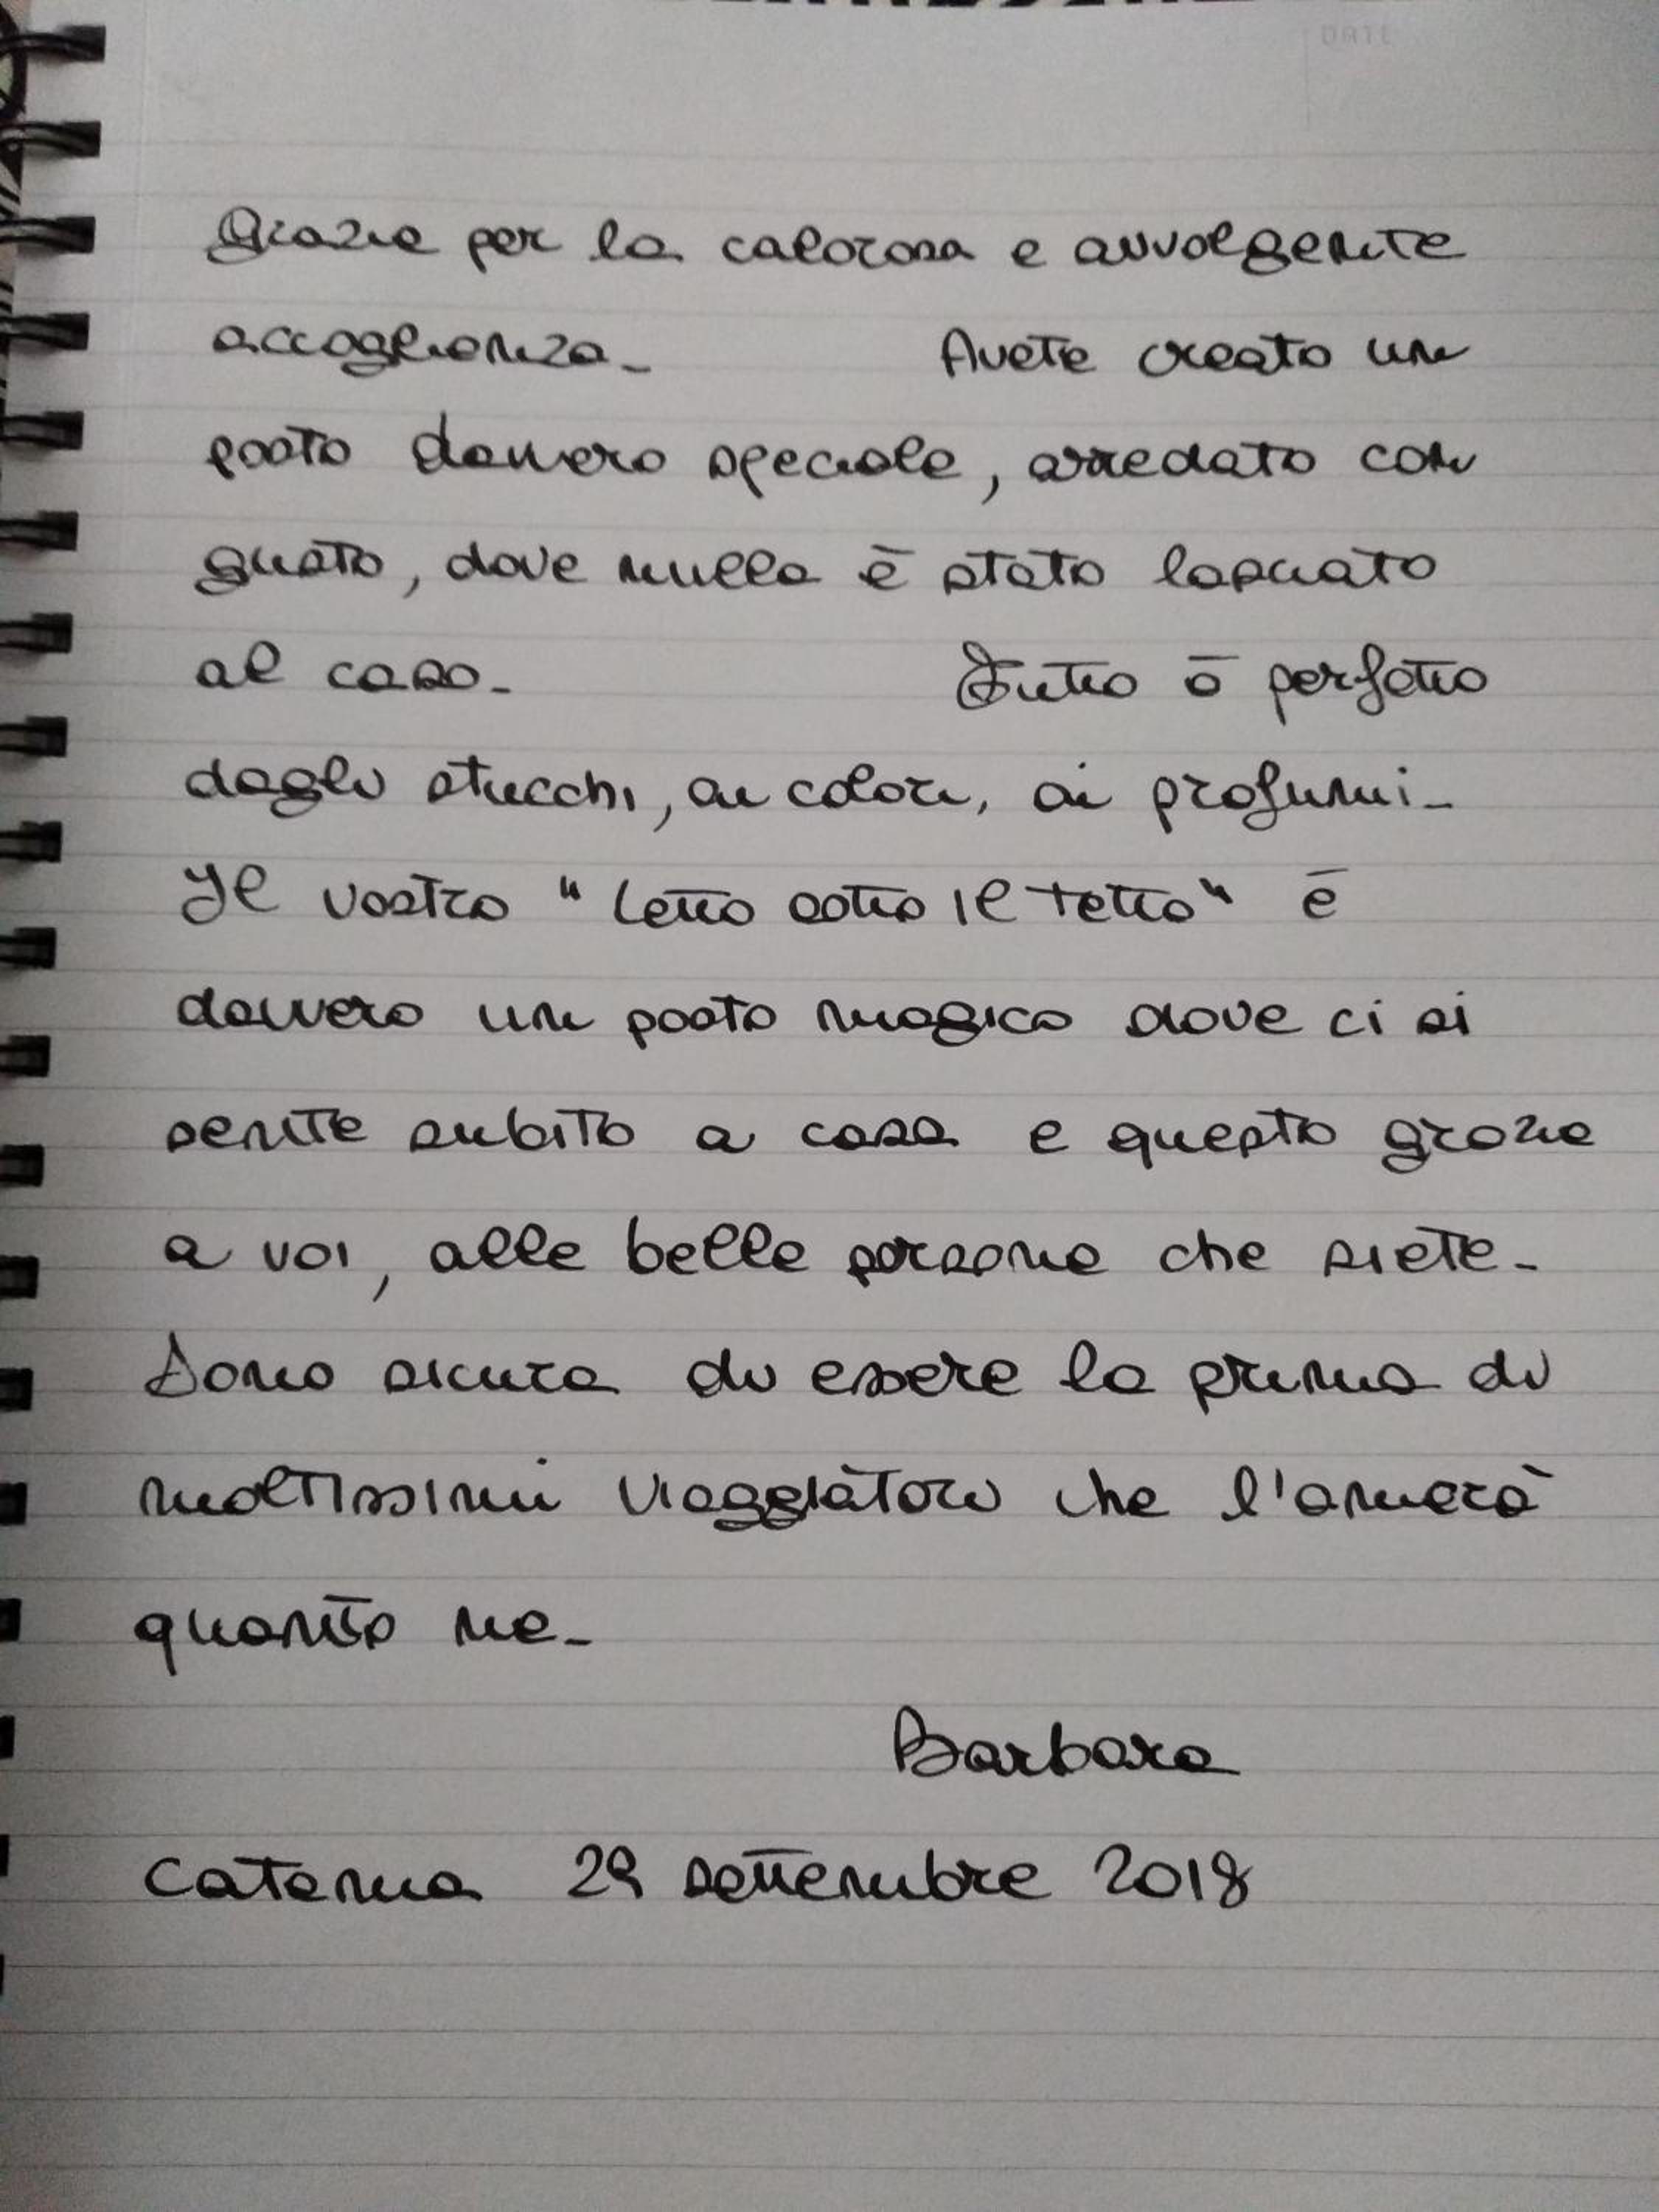 DATE
Grazie per la calorosa e avvolgente
accoglienza_ Avete creato un
posto davvero speciale, arredato con
gusto, dove nulla è stato lasciato
al caso_ Tutto è perfetto
dagli stucchi, ai colori, ai profumi_
Il vostro "Letto sotto il tetto" è
davvero un posto magico dove ci si
sente subito a casa e questo grazie
a voi, alle belle persone che siete_
Sono sicura di essere la prima di
moltissimi viaggiatori che l'amerà
quanto me_
Barbara
Catania 29 settembre 2018